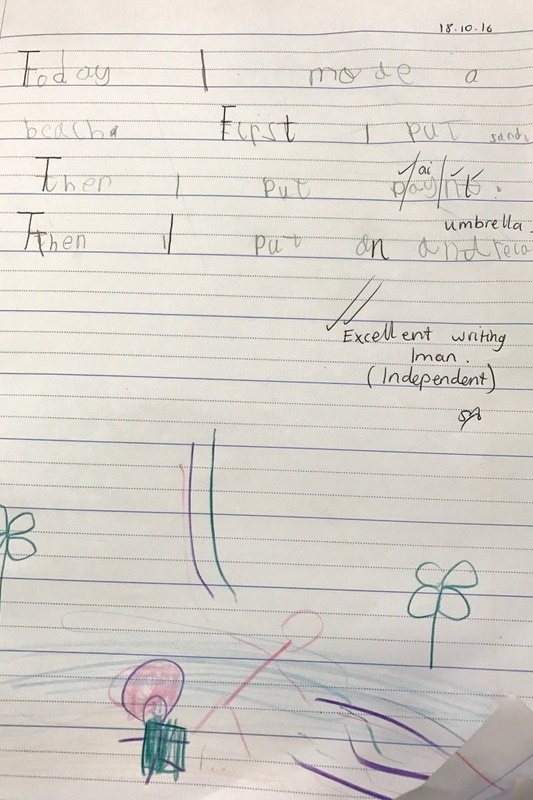 18.10.16
Today I made a
beach. First I put sand.
Then I put
ai
umbrella.
Then I put an andrela
Excellent writing
Iman.
(Independent)